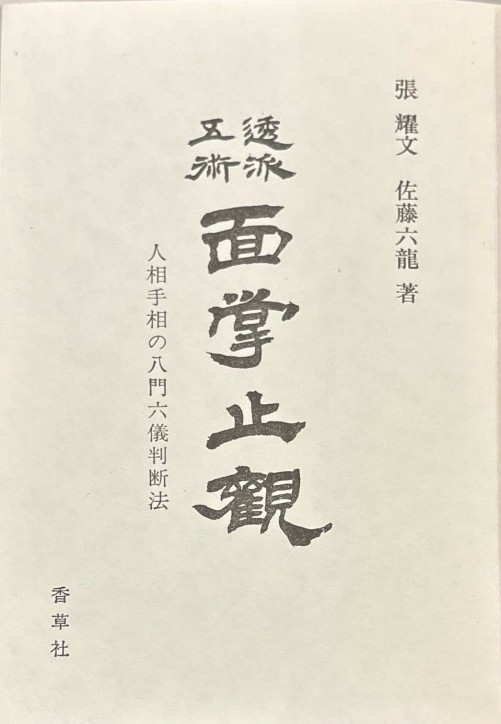 張耀文 佐藤六龍 著
透派
五術
面掌止觀
人相手相の八門六儀判断法
香草社